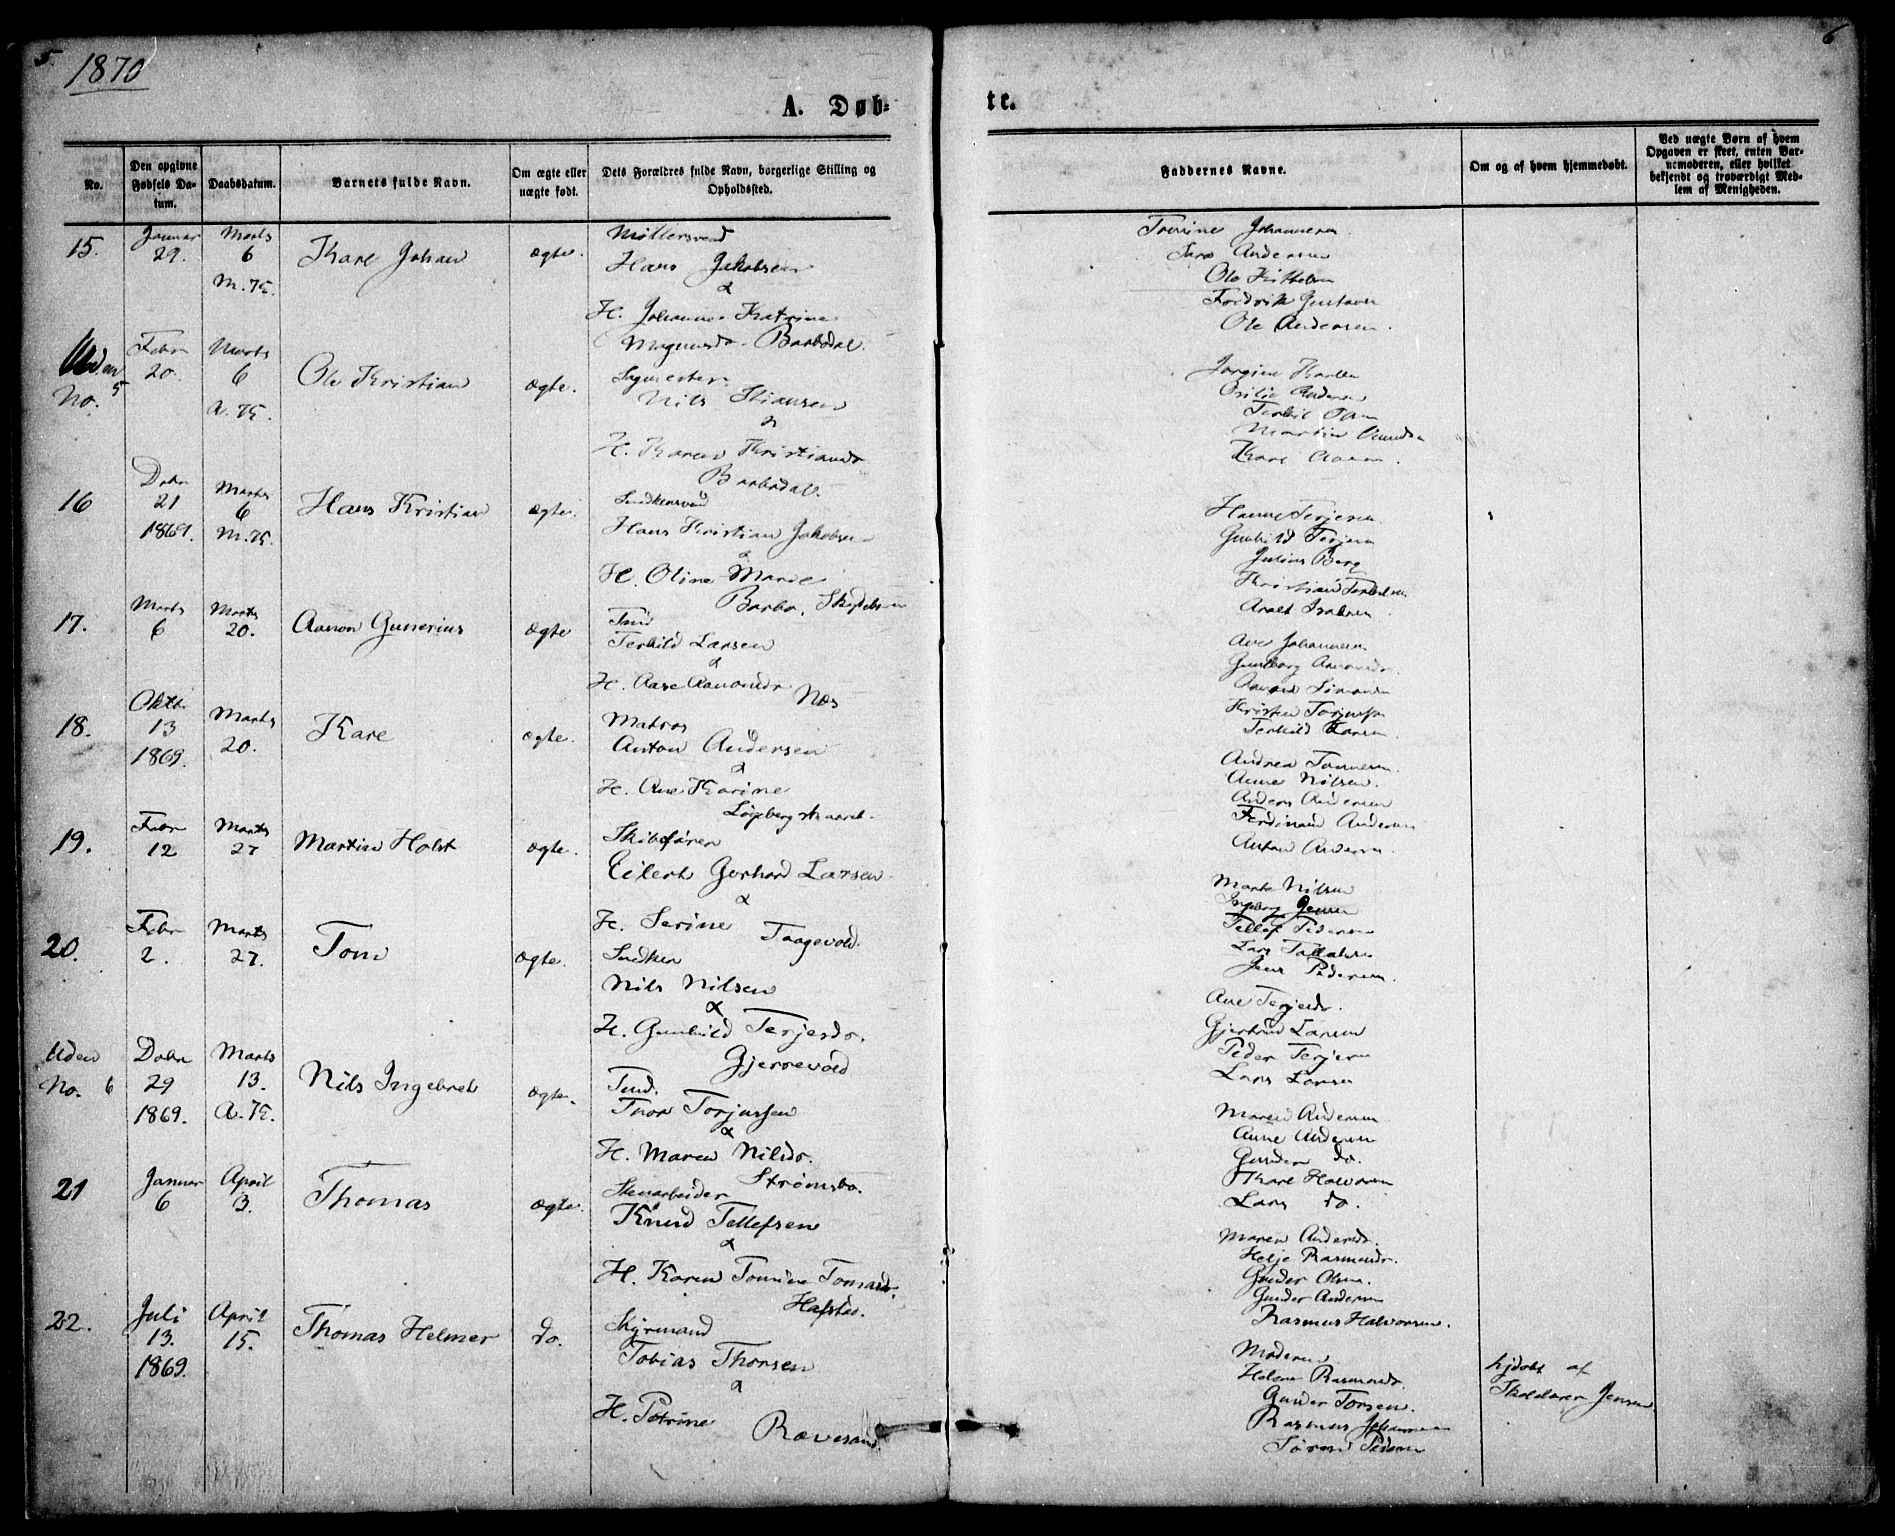 5.
1870
6
A. Døb-
te.
No.
Den opgivne Fødsels Da-
tum.
Daabsdatum.
Barnets fulde Navn.
Om ægte eller
uægte født.
Dets Forældres fulde Navn, borgerlige Stilling og
Opholdssted.
Faddernes Navne.
Om og af hvem hjemmedøbt.
Ved uægte Børn af hvem
Opgaven er skeet, enten Bar-
nemoderen, eller hvilket
bekjendt og troværdigt Med-
lem af Menigheden.
15.
Januar
29.
Marts
6
Karl Johan
Ægte.
Møllersvend
Hans Jakobsen
&
H. Johanne Katrine
Magnusdr. Barbodal.
Johannesen
Andersen
Ole Kittelsen
Fredrik Gustavsen
Ole Andersen.
Uden
No. 5
Febr
20.
Marts
6
Ole Kristian
Ægte.
Nils Stiansen
&
H. Karen Kristiansdr
Barbodal.
Karl Aasen.
16
Debr
21
1869.
Marts
6
Hans Kristian
Ægte.
Snedkersvend
Hans Kristian Jakobsen
&
H. Oline Marie
Barbo.
Hanne Terjesen
Gunhild Terjesen
Julius Berg
17.
Marts
6
Marts
20.
Aanon Gunerius
Ægte
Terkild Larsen
&
H. Aase Aanonsdr
Næs
Ane Johannesen
Gunborg Aanonsdr.
Terkild Larsen.
18.
Oktbr
13
1869.
Marts
20.
Karl
Ægte.
Matros
Anton Andersen
&
H. Ane Karine
Andrea Tønnesen.
Anne Nilsen.
Anders Andersen
Ferdinand Andersen
Anton Andersen
19.
Febr
12
Marts
27
Martin Holst
Ægte.
Skibsfører
Eilert Gerhard Larsen
&
H. Serine Taagevold.
Marte Nilsen
Ingeborg Jensen
Tellef Pedersen
Jens Pedersen.
20.
Febr
2.
Marts
27.
Tom
Ægte.
Snedker
Nils Nilsen
&
H. Gunhild Terjesdr.
Gjerrevold
Ane Terjesdr.
Gjertrud Larsen
Peder Terjesen
Lars Larsen
Uden
No. 6
Debr
29
1869.
Marts
13.
Nils Ingebret
Ægte.
Thor Torjussen
&
H. Maren Nilsdr.
Strømsbo.
Maren Andersen
Anne Andersen
Gunder do.
Karl Halvorsen
Lars do.
21
Januar
6
April
3.
Thomas
Ægte.
Knud Tellefsen
&
H. Karen Tomine Tomasdr.
Hafsted.
Maren Andersdr.
Helje Rasmusdr.
Gunder Olsen.
Gunder Andersen
Rasmus Halvorsen.
22.
Juli
13.
1869.
April
15.
Thomas Helmer
do.
Styrmand
Tobias Thorsen
&
H. Petrine
Rævesand.
Moderen
Helene Rasmusdr.
Gunder Torsen.
Rasmus Johannesen
Søren Pedersen
hjdøbt af
Jensen